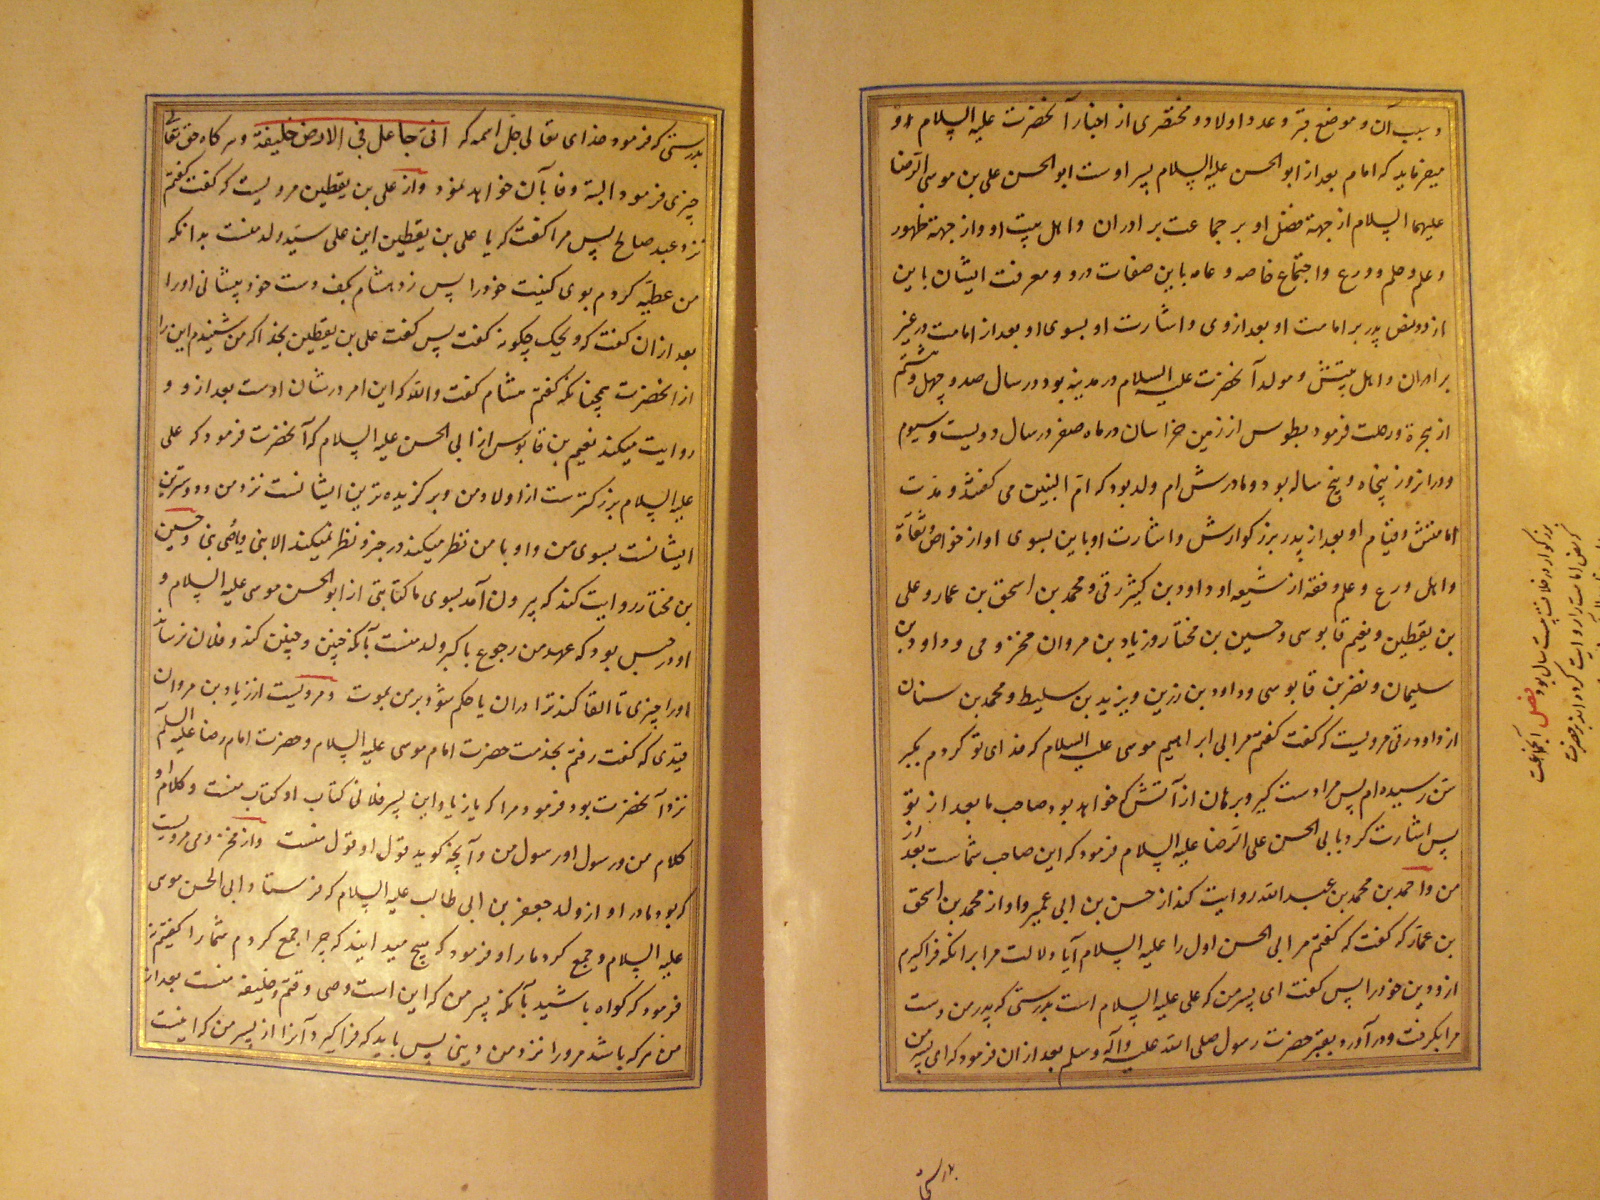 و سبب آن و موضع قبر و عدد اولاد و مختصری از اخبار آنحضرت علیه السلام او
میفرماید که امام بعد از ابو الحسن علیه السلام پسر اوست ابو الحسن علی بن موسی الرضا
علیهما السلام از جهة فضل او بر جماعت برادران و اهل بیت او و از جهة ظهور
و علم و حلم و ورع و اجتماع خاصه و عامه باین صفات درو و معرفت ایشان باین
ازو و نص پدر بر امامت او بعد ازوی و اشارت او بسوی او بعد از امامت در غیر
برادران و اهل بیتش و مولد آنحضرت علیه السلام در مدینه بود در سال صد و چهل و هشتم
از هجرة و رحلت فرمود بطوس از زمین خراسان در ماه صفر در سال دویست و سیوم
و در انروز پنجاه و پنج ساله بود و مادرش ام ولد بود که ام البنین می گفتند و مدت
امامتش و قیام او بعد از پدر بزرگوارش و اشارت او باین بسوی او از خواص و ثقاة
و اهل ورع و علم و فقه از شیعه او داود بن کثیر رقی و محمد بن اسحق بن عمار و علی
بن یقطین و نعیم قابوسی و حسین بن مختار و زیاد بن مروان مخزومی و داود بن
سلیمان و نصر بن قابوسی و داود بن رزین و یزید بن سلیط و محمد بن سنان
از داود رقی مرویست که گفت گفتم مر ابی ابراهیم موسی علیه السلام که فدای تو گردم بکبر
سن رسیده ام پس مرا دست گیر و برهان از آتش که خواهد بود صاحب ما بعد از تو
پس اشارت کرد بابی الحسن علی الرضا علیه السلام فرمود که این صاحب شماست بعد از
من و احمد بن محمد بن عبد الله روایت کند از حسن بن ابی عمیر و او از محمد بن اسحق
بن عمار که گفت که گفتم مر ابی الحسن اول را علیه السلام آیا دلالت مرا برانکه فراگیرم
ازو دین خود را پس گفت ای پسر من که علی علیه السلام است بدرستی که پدر من دست
مرا بگرفت و در آورد بقبر حضرت رسول صلی الله علیه وآله وسلم بعد از ان فرمود که ای پسر من
بدرستی
بزرگوار در خلافت بیست سال بود فصل آنجماعت
که نص امامت را روایت کرده اند از حضرت
بدرستی که فرمود خدای تعالی جل اسمه که انی جاعل فی الارض خلیفة و هر کاه حق تعالی
چیزی فرمود البته وفا بآن خواهد نمود و از علی بن یقطین مرویست که گفت گفتم
نزد عبد صالح پس مرا گفت که یا علی بن یقطین این علی سید ولد منست بدانکه
من عطیه کردم بوی کنیت خود را پس زد هشام بکف دست خود پیشانی او را
بعد از ان گفت که ویحک چگونه گفت پس گفت علی بن یقطین بخدا که من شنیدم این را
از انحضرت همچنانکه گفتم هشام گفت والله که این امر در شان اوست بعد ازو و
روایت میکند نعیم بن قابوس از ابی الحسن علیه السلام که آنحضرت فرمود که علی
علیه السلام بزرکترست از اولاد من و برگزیده ترین ایشانست نزد من و دوسترین
ایشانست بسوی من و او با من نظر میکند در جفر و نظر نمیکند الا نبی یا وصی نبی و حسین
بن مختار روایت کند که بیرون آمد بسوی ما کتابتی از ابو الحسن موسی علیه السلام و
او در حبس بود که عهد من رجوع باکبر ولد منست بآنکه چنین و چنین کند و فلان نرساند
او را چیزی تا القا کند ترا در ان یا حکم شود بر من بموت و مرویست از زیاد بن مروان
قندی که گفت رفتم بخدمت حضرت امام موسی علیه السلام و حضرت امام رضا علیه السلام
نزد آنحضرت بود فرمود مرا که یا زیاد این پسر فلانی کتاب او کتاب منست و کلام او
کلام من و رسول او رسول من و آنچه گوید قول او قول منست و از مخزومی مرویست
که بود مادر او از ولد جعفر بن ابی طالب علیه السلام که فرستاد ابی الحسن موسی
علیه السلام و جمع کرد ما را و فرمود که هیچ میدانید که چرا جمع کردم شما را گفتیم نه
فرمود که گواه باشید بآنکه پسر من که این است وصی و قیم و خلیفه منست بعد از
من هر که باشد مرو را نزد من دینی پس باید که فراگیرد آنرا از پسر من که اینست